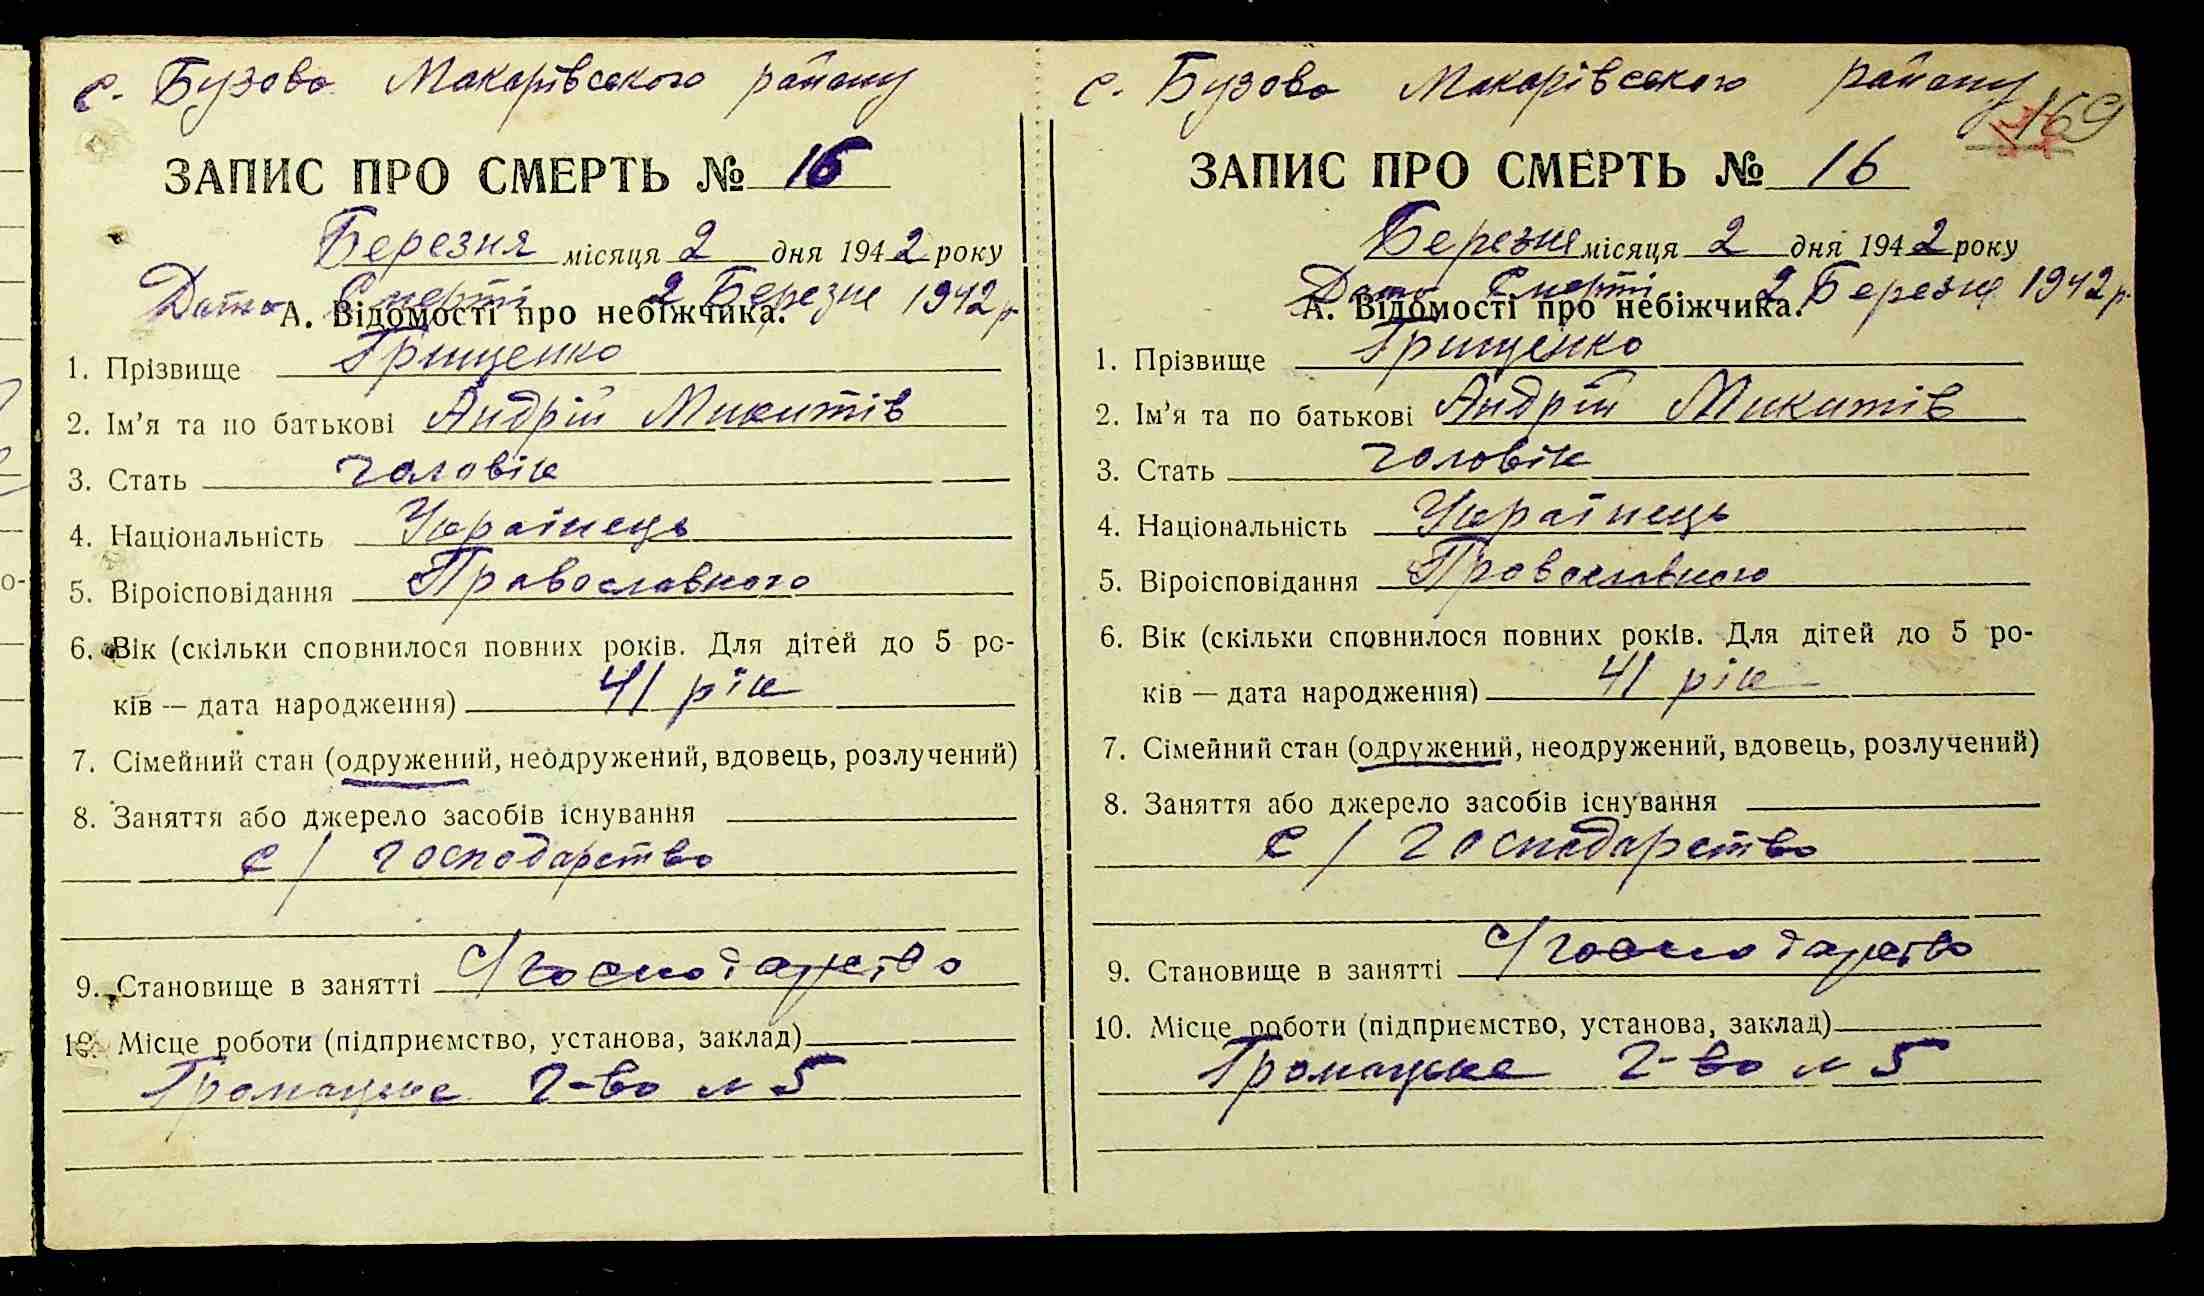 с. Бузова Макарівського району
ЗАПИС ПРО СМЕРТЬ № 16
Березня місяця 2 дня 1942 року
Дата Смерті 2 Березня 1942 р.
А. Відомості про небіжчика.
1. Прізвище Грищенко
2. Ім'я та по батькові Андрій Микитів
3. Стать чоловік
4. Національність Українець
5. Віроісповідання Православного
6. Вік (скільки сповнилося повних років. Для дітей до 5 ро-
ків — дата народження) 41 рік
7. Сімейний стан (одружений, неодружений, вдовець, розлучений)
8. Заняття або джерело засобів існування
с/господарство
9. Становище в занятті с/господарство
10. Місце роботи (підприємство, установа, заклад)
Громадське г-во № 5
с. Бузова Макарівського району
169
ЗАПИС ПРО СМЕРТЬ № 16
Березня місяця 2 дня 1942 року
Дата Смерті 2 Березня 1942 р.
А. Відомості про небіжчика.
1. Прізвище Грищенко
2. Ім'я та по батькові Андрій Микитів
3. Стать чоловік
4. Національність Українець
5. Віроісповідання Православного
6. Вік (скільки сповнилося повних років. Для дітей до 5 ро-
ків — дата народження) 41 рік
7. Сімейний стан (одружений, неодружений, вдовець, розлучений)
8. Заняття або джерело засобів існування
с/господарство
9. Становище в занятті с/господарство
10. Місце роботи (підприємство, установа, заклад)
Громадське г-во № 5